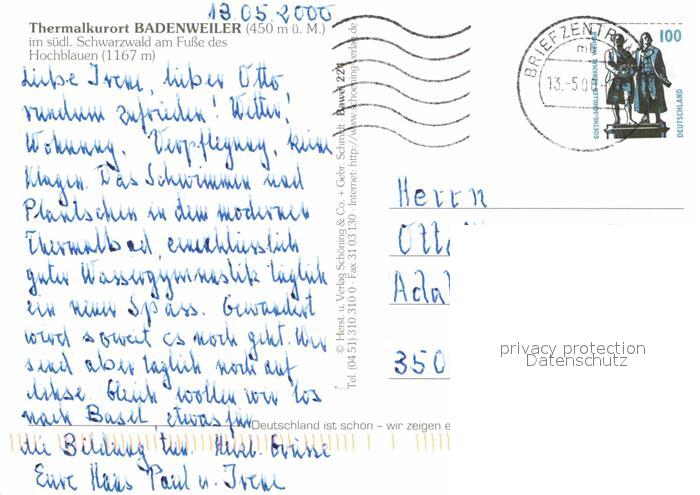 13.05.2000
Thermalkurort BADENWEILER (450 m ü. M.)
im südl. Schwarzwald am Fuße des
Hochblauen (1167 m)
Liebe Irene, lieber Otto,
rundum zufrieden! Wetter,
Wohnung, Verpflegung, keine
Klagen. Das Schwimmen und
Plantschen in dem modernen
Thermalbad, einschliesslich
guter Wassergymnastik täglich
ein neuer Spass. Gewandert
wird soweit es noch geht. Wir
sind aber täglich noch auf
Achse. Gleich wollen wir los
nach Basel, etwas für
die Bildung tun. Herzl. Grüsse
Eure Hans Paul u. Irene
© Herst. u. Verlag Schöning & Co. + Gebr. Schmidt · Bawei 221
Tel. (04 51) 310 310 0 · Fax 31 03 130 · Internet: http://www.schoening-verlag.de
Deutschland ist schön – wir zeigen e
BRIEFZENTRUM
13.-5.00
100
GOETHE-SCHILLER-DENKMAL WEIMAR
DEUTSCHLAND
Herrn
Ott
Adal
350
privacy protection
Datenschutz